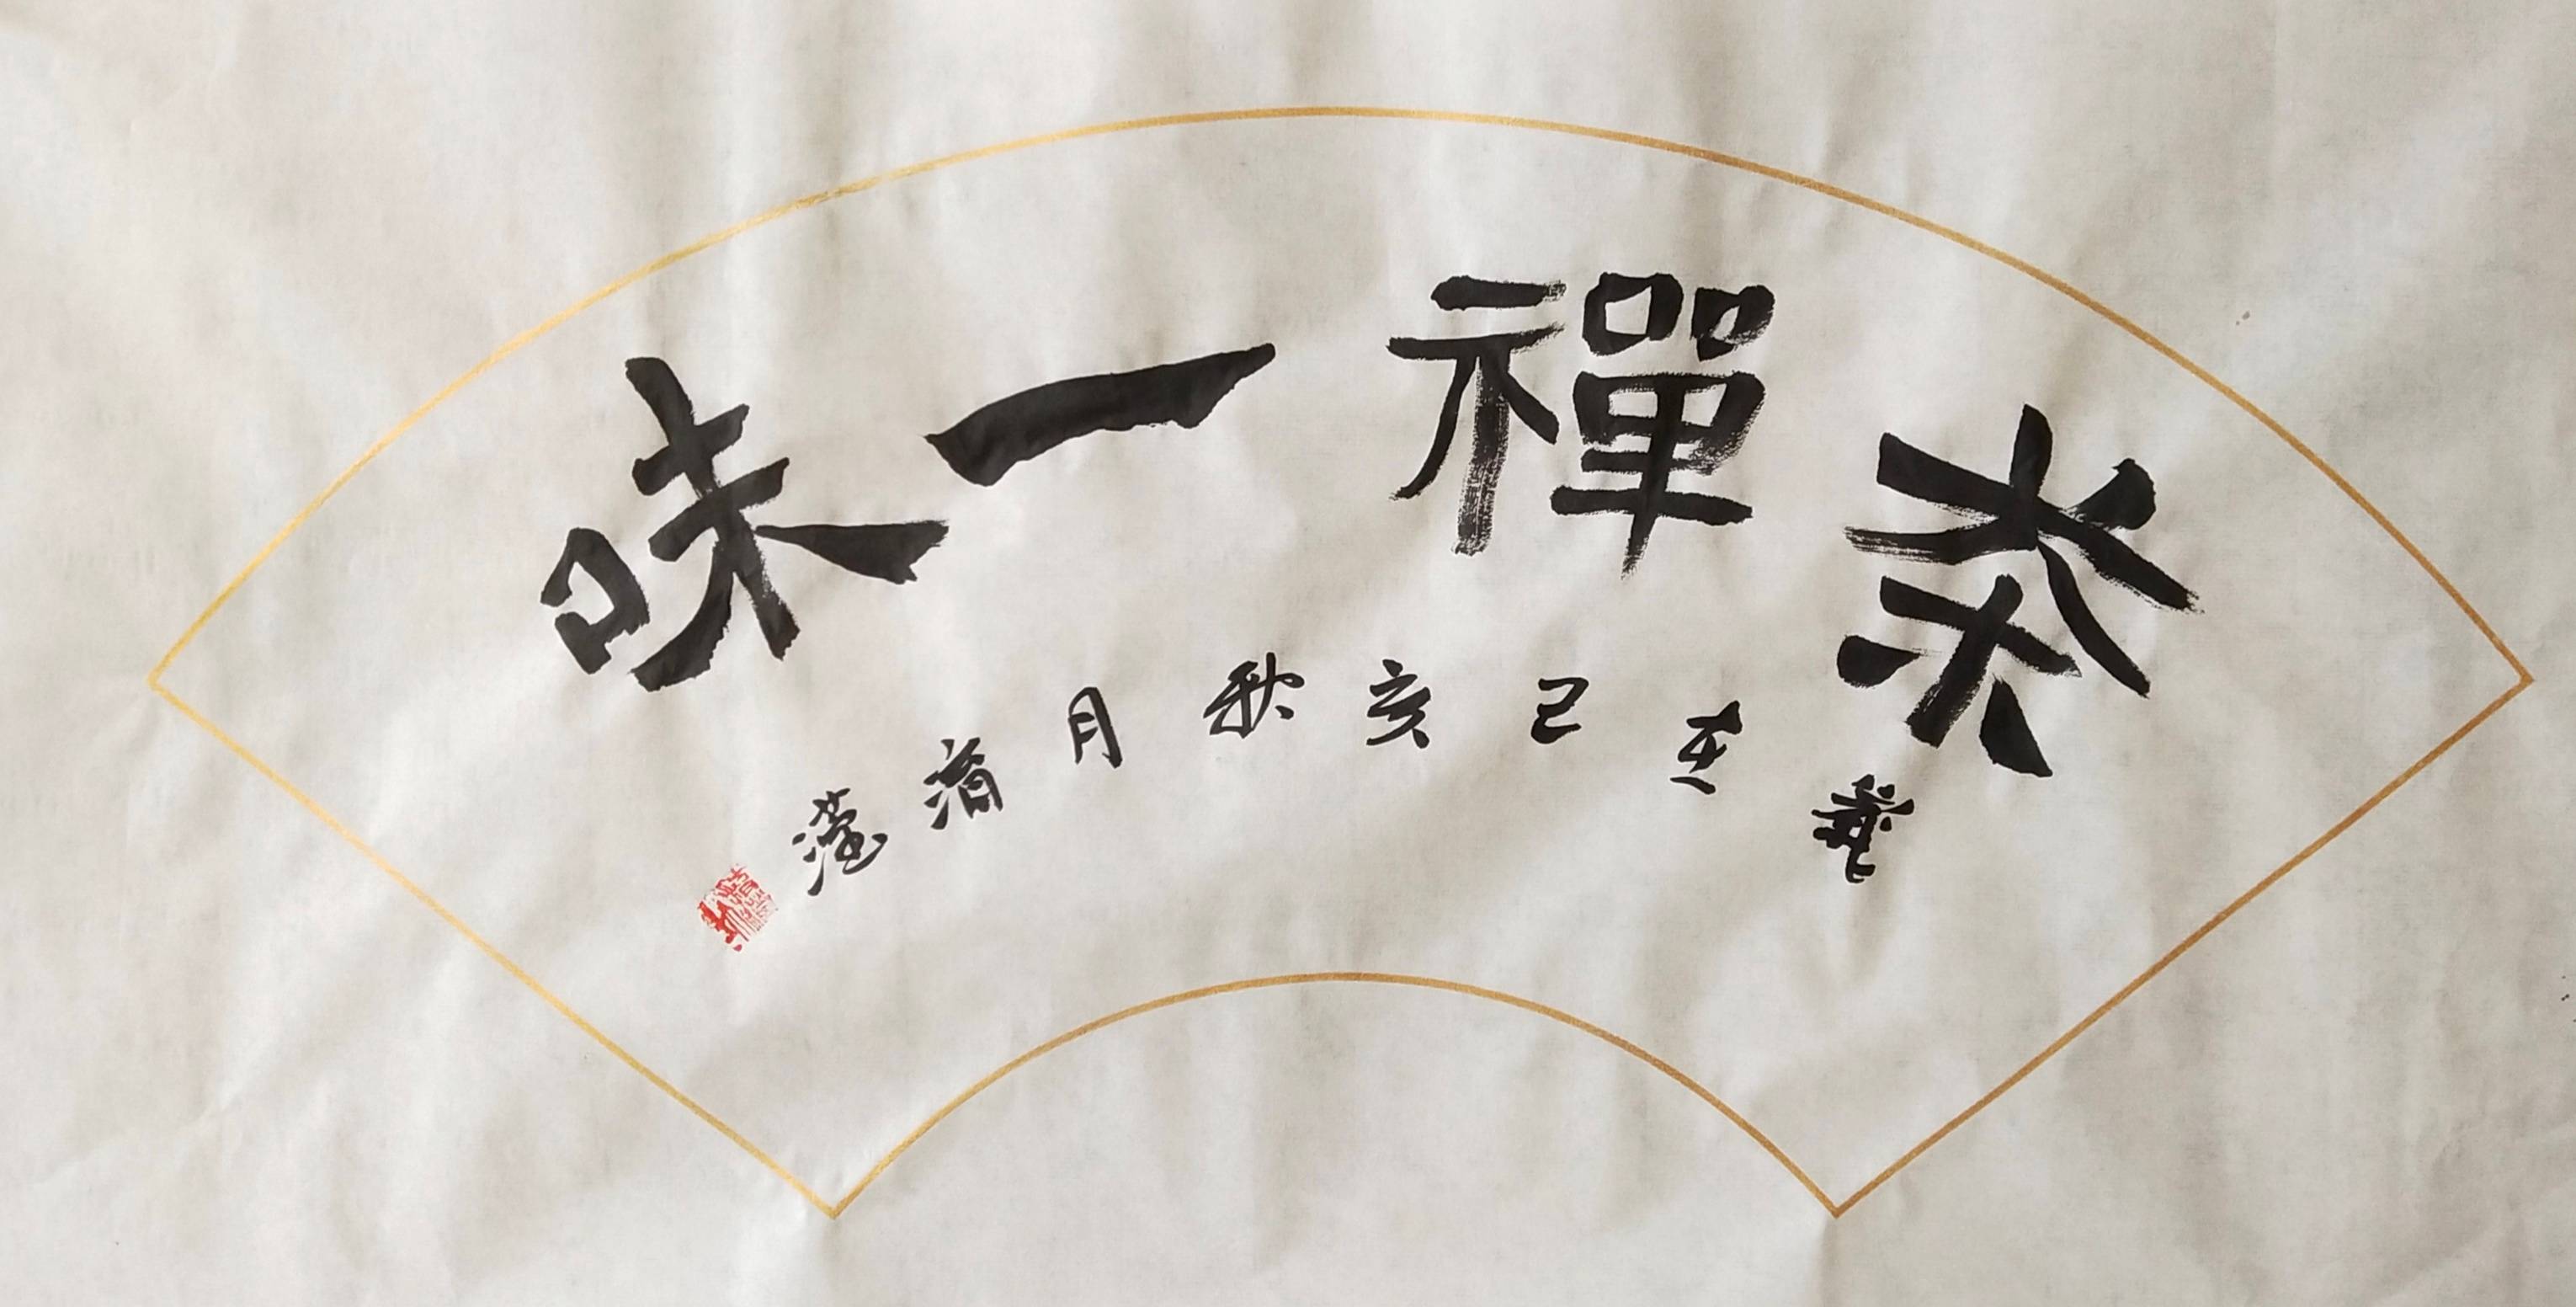 茶禪一味
歲在己亥秋月